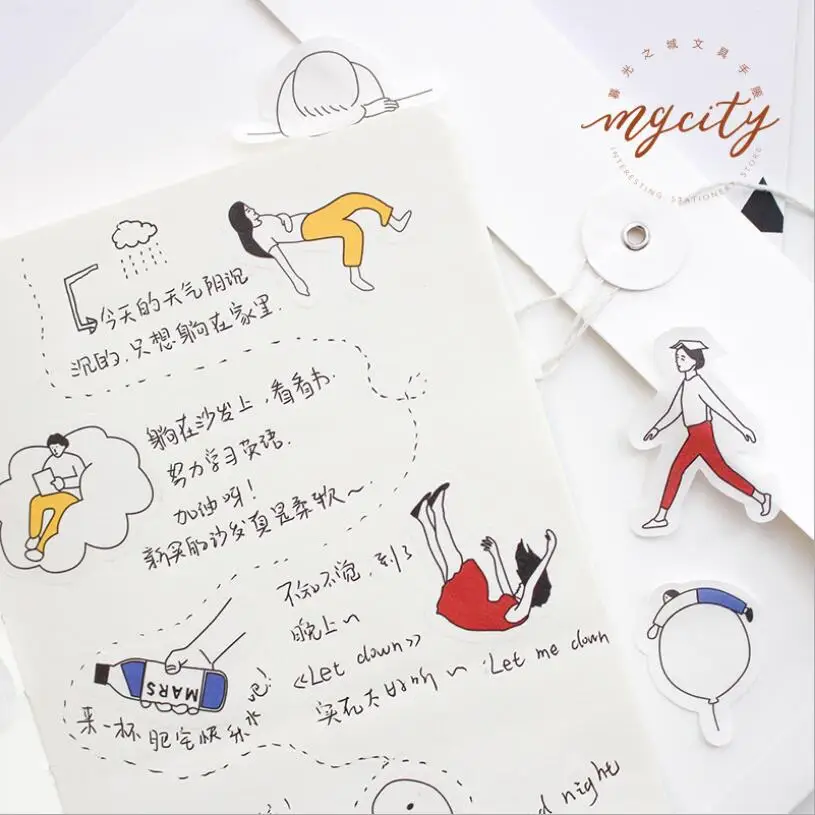 暮光之城文具手账
mgcity
INTERESTING STATIONERY STORE
今天的天气阴沉
沉的,只想躺在家里.
躺在沙发上,看看书.
努力学习英语.
加油呀!
新买的沙发真是柔软~
不知不觉,到了
晚上~
《Let down》
实在太好听~ :Let me down
MARS
来一杯肥宅快乐水
night